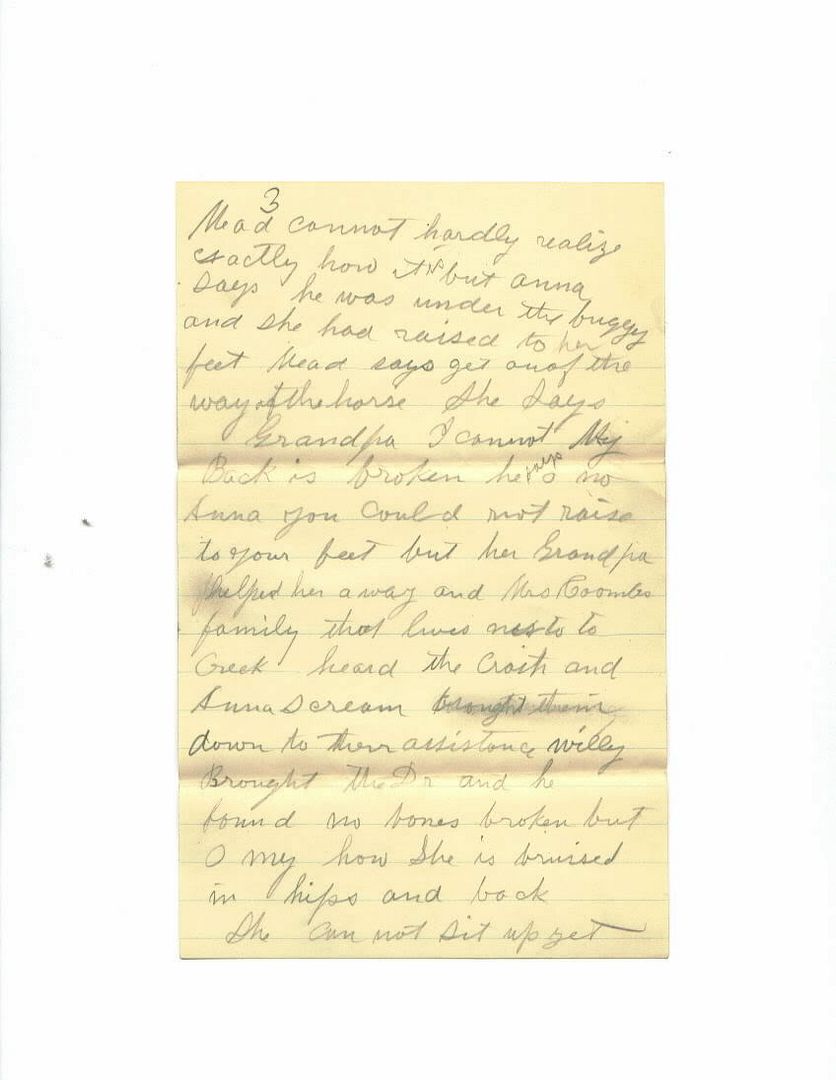 3
Mead cannot hardly realize
exactly how it is but anna
says he was under the buggy
and she had raised to her
feet Mead says get ouof the
way of the horse She Says
Grandpa I cannot My
Back is broken he says no
Anna you Could not raise
to your feet but her Grandpa
helped her away and Mrs Coombs
family that lives to
Creek heard the Crash and
Anna Scream brought them
down to their assistance willy
Brought the Dr and he
found no bones broken but
O my how She is bruised
in hips and back
She Can not Sit up yet